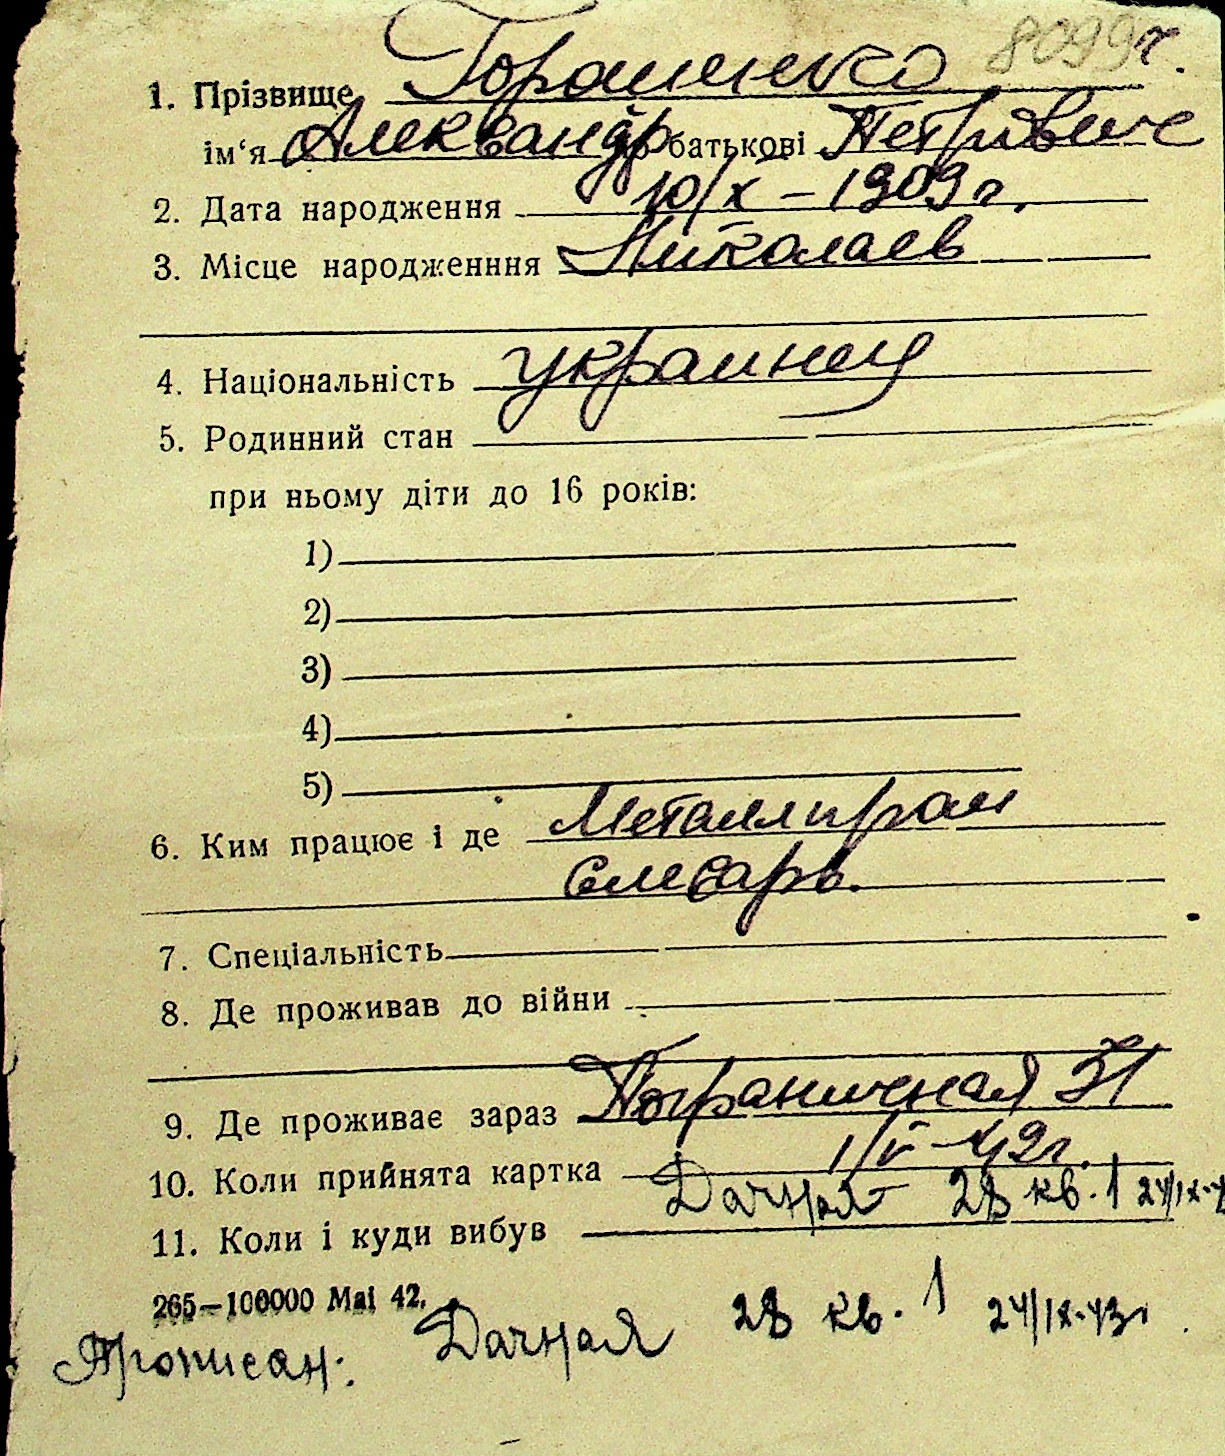 8099г.
1. Прізвище Горашенко
ім‘я Александр по батькові Петрович
2. Дата народження 10/X – 1909 г.
3. Місце народженння Николаев
4. Національність украинец
5. Родинний стан
при ньому діти до 16 років:
1)
2)
3)
4)
5)
6. Ким працює і де Металлпром
Слесарь.
7. Спеціальність
8. Де проживав до війни
9. Де проживає зараз Пограничная 31
10. Коли прийнята картка 1/V – 42г.
11. Коли і куди вибув Дачная 28 кв. 1 24/IX-
265—100000 Mai 42.
Прописан: Дачная 28 кв. 1 24/IX-43г.